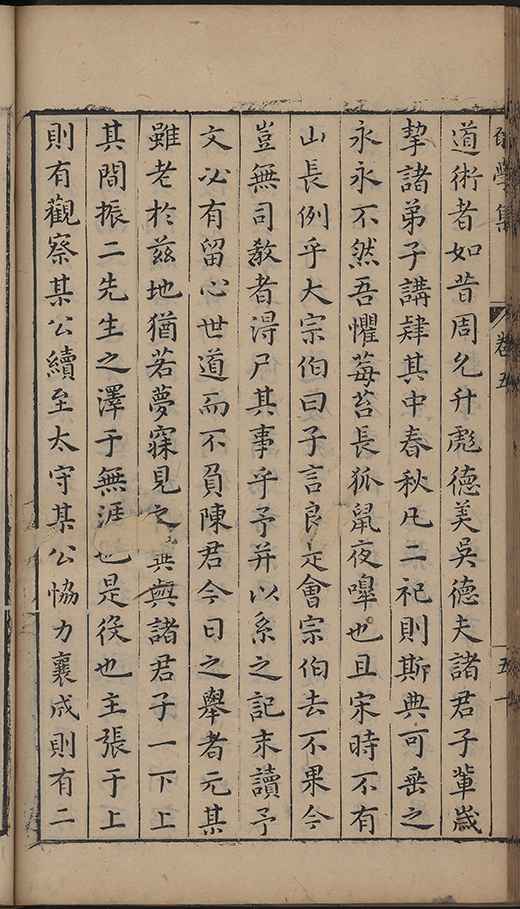 學集 卷五 五十一
道術者如昔周允升彪德美吳德夫諸君子輩歲
挈諸弟子講肄其中春秋凡二祀則斯典可垂之
永永不然吾懼莓苔長狐鼠夜嘷也且宋時不有
山長例乎大宗伯曰子言良是會宗伯去不果今
豈無司教者得尸其事乎予并以系之記末讀予
文必有留心世道而不負陳君今日之舉者元某
雖老於茲地猶若夢寐見之其與諸君子一下上
其間振二先生之澤于無涯也是役也主張于上
則有觀察某公續至太守某公恊力襄成則有二